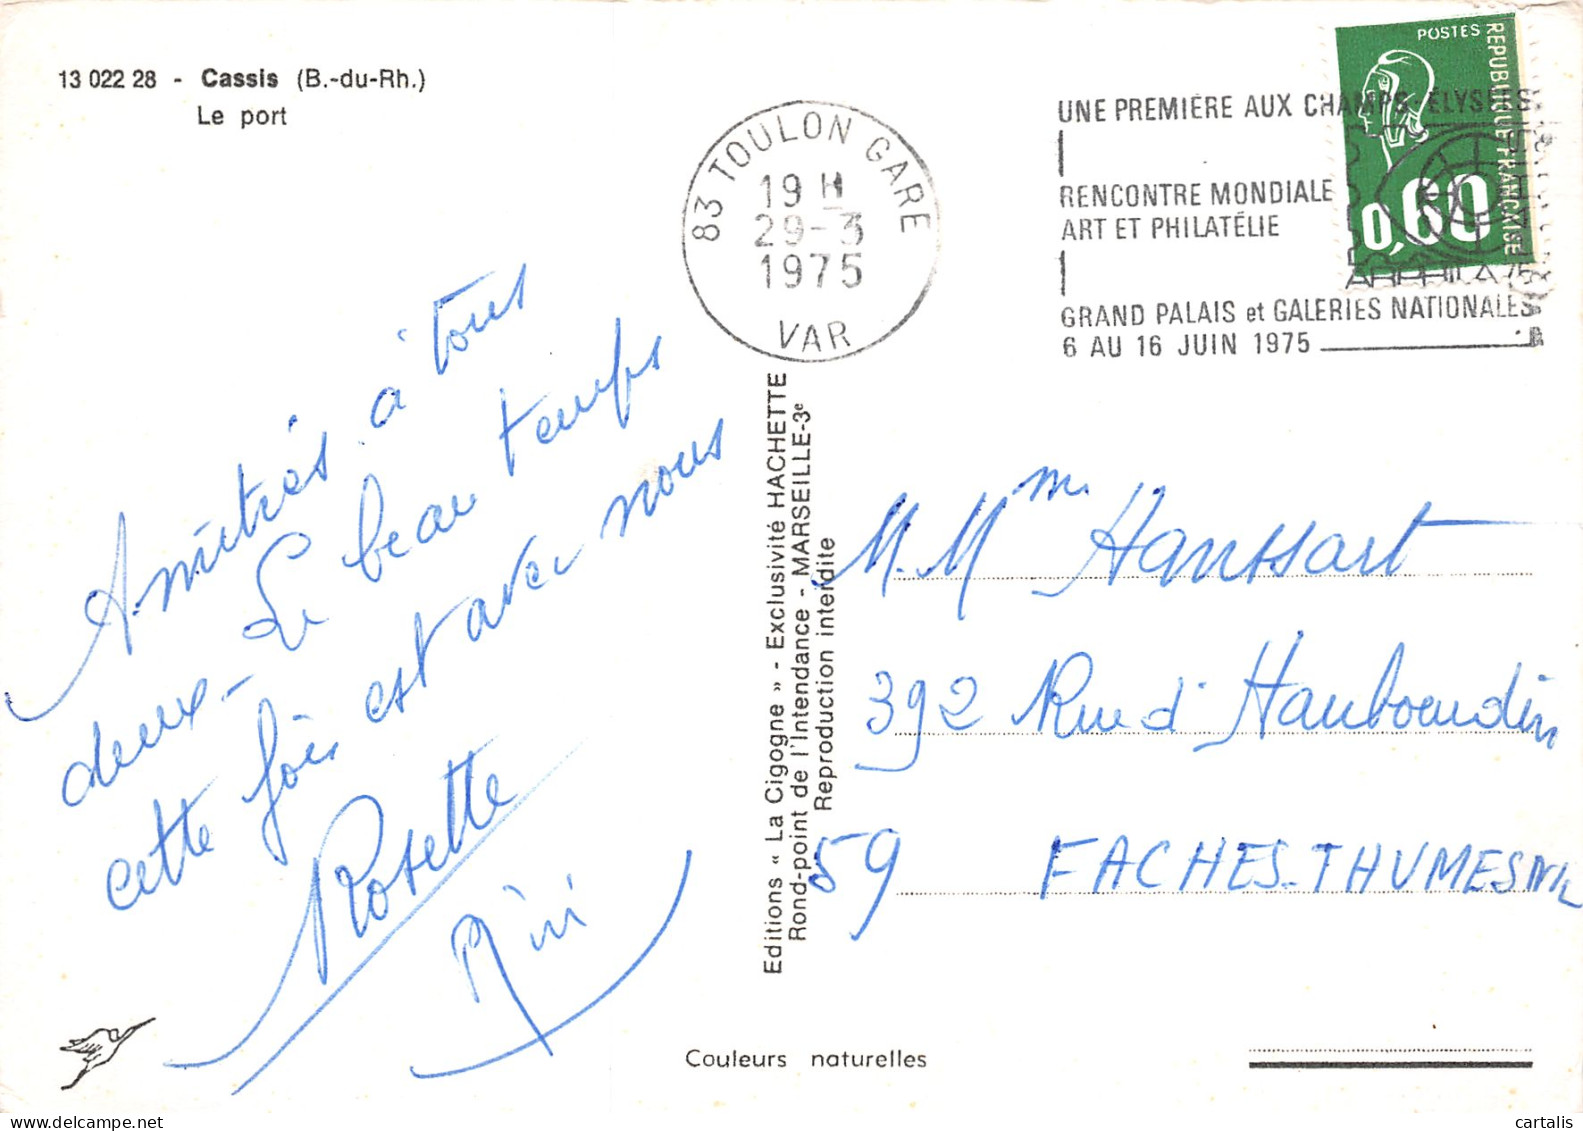 13 022 28 - Cassis (B.-du-Rh.)
Le port
83 TOULON GARE
19 H
29-3
1975
VAR
UNE PREMIÈRE AUX CHAMPS-ÉLYSÉES
RENCONTRE MONDIALE
ART ET PHILATÉLIE
GRAND PALAIS et GALERIES NATIONALES
6 AU 16 JUIN 1975
ARPHILA 75
POSTES
REPUBLIQUE FRANÇAISE
0,60
Amitiés à tous
deux - Le beau temps
cette fois est avec nous
Rosette
Editions « La Cigogne » - Exclusivité HACHETTE
Rond-point de l'Intendance - MARSEILLE-3e
Reproduction interdite
M. Mme Hanssart
392 Rue d'Haubourdin
59 FACHES-THUMESNIL
Couleurs naturelles
cartalis
www.delcampe.net